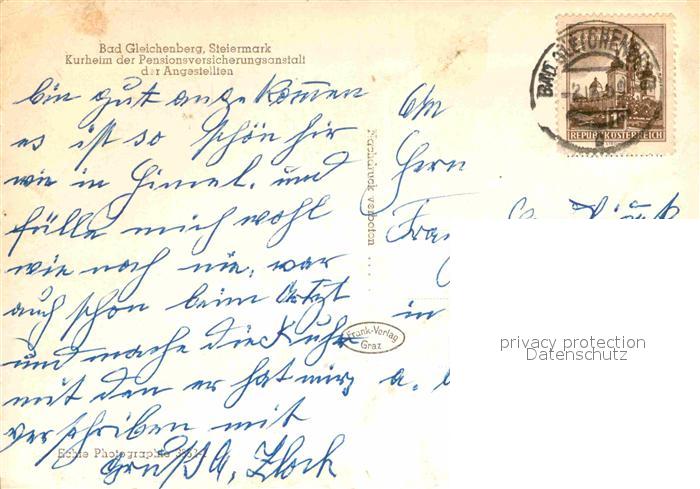 Bad Gleichenberg, Steiermark
Kurheim der Pensionsversicherungsanstalt
der Angestellten
bin gut angekommen
es ist so schön hir
wie in Himel. und
fülle mich wohl
wie noch nie, war
auch schon beim Artzt
und mache die Kuhr
mit den er hat mir
verschriben mit
Gruß
Echte Photographie
Nachdruck verboten
Frank-Verlag
Graz
BAD GLEICHENBERG
REPUBLIK ÖSTERREICH
Hern
in
privacy protection
Datenschutz